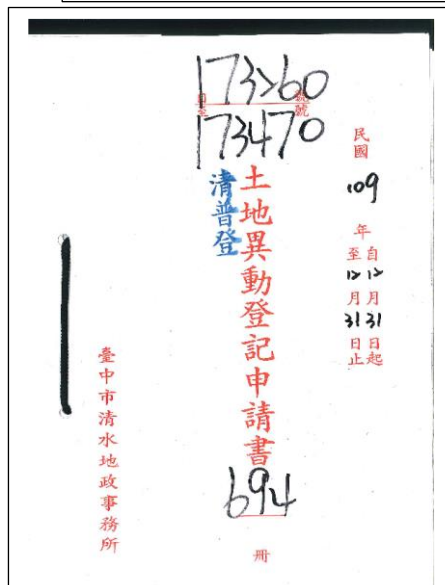 自173260號
至173470號
民國109年自12月31日起
至12月31日止
清普登
土地異動登記申請書
694冊
臺中市清水地政事務所